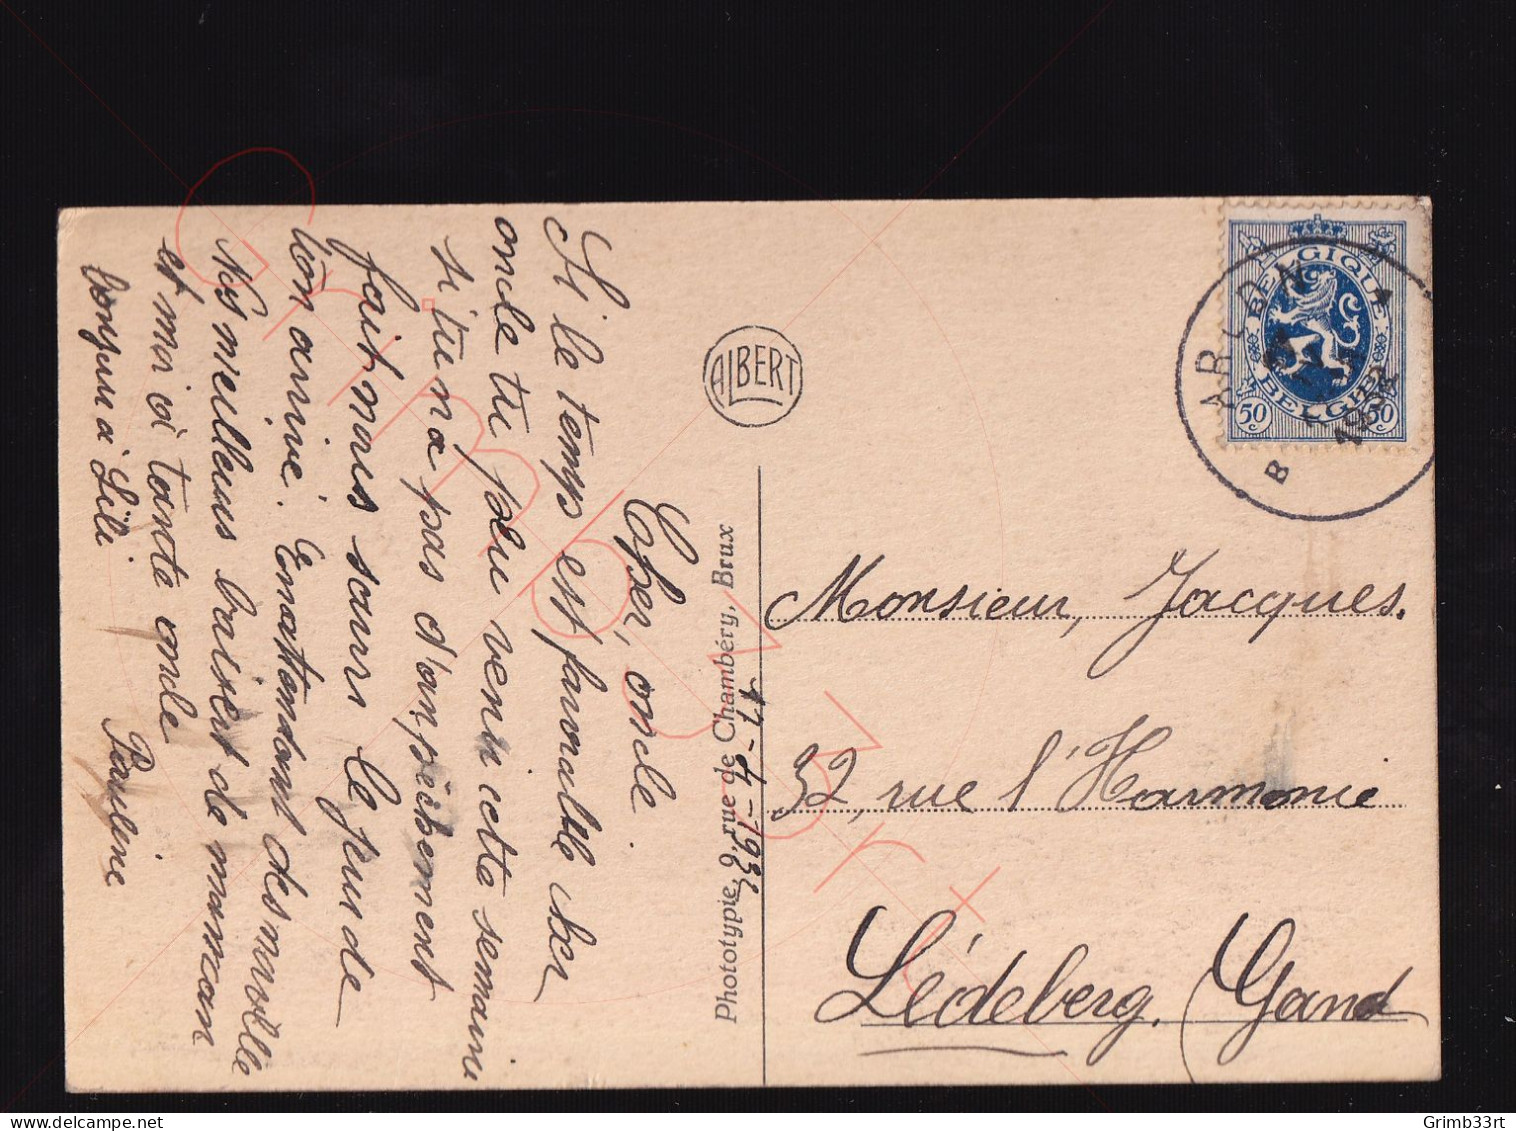 Caher, oncle
Si le temps est favorable cher
oncle tu peu venir cette semaine
si tu n'a pas d'anpèchement
fait nous savoir le jour de
ton arrivé. Enattendant des nouvelle
Nos meilleurs baisers de maman
et moi à tante oncle
bonjour a Lili
Pauline
ALBERT
Phototypie, 9, rue de Chambéry, Brux
17-4-1932
BELGIQUE
BELGIE
50 c
50 c
ARDON
B
1932
Monsieur, Jacques.
32, rue l'Harmonie
Lédeberg. (Gand
Grimb33rt
Grimb33rt